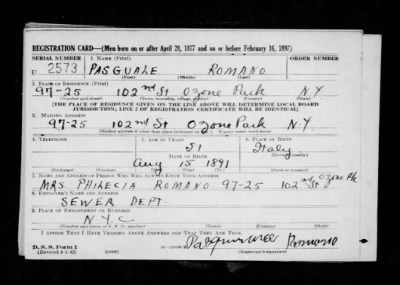 REGISTRATION CARD—(Men born on or after April 28, 1877 and on or before February 16, 1897)
SERIAL NUMBER 1. NAME (Print) ORDER NUMBER
U 2573 PASQUALE ROMANO
(First) (Middle) (Last)
2. PLACE OF RESIDENCE (Print)
97-25 102nd St Ozone Park N.Y
(Number and street) (Town, township, village, or city) (County) (State)
[THE PLACE OF RESIDENCE GIVEN ON THE LINE ABOVE WILL DETERMINE LOCAL BOARD
JURISDICTION; LINE 2 OF REGISTRATION CERTIFICATE WILL BE IDENTICAL]
3. MAILING ADDRESS
97-25 102nd St Ozone Park N.Y.
4. TELEPHONE 5. AGE IN YEARS 6. PLACE OF BIRTH
51
DATE OF BIRTH Italy
Aug 15 1891
7. NAME AND ADDRESS OF PERSON WHO WILL ALWAYS KNOW YOUR ADDRESS
MRS. PHILECIA ROMANO 97-25 102nd St Ozone Pk
8. EMPLOYER'S NAME AND ADDRESS
SEWER DEPT.
9. PLACE OF EMPLOYMENT OR BUSINESS
N.Y.C
I AFFIRM THAT I HAVE VERIFIED ABOVE ANSWERS AND THAT THEY ARE TRUE.
D. S. S. Form 1
(Revised 4-1-42)
Romano